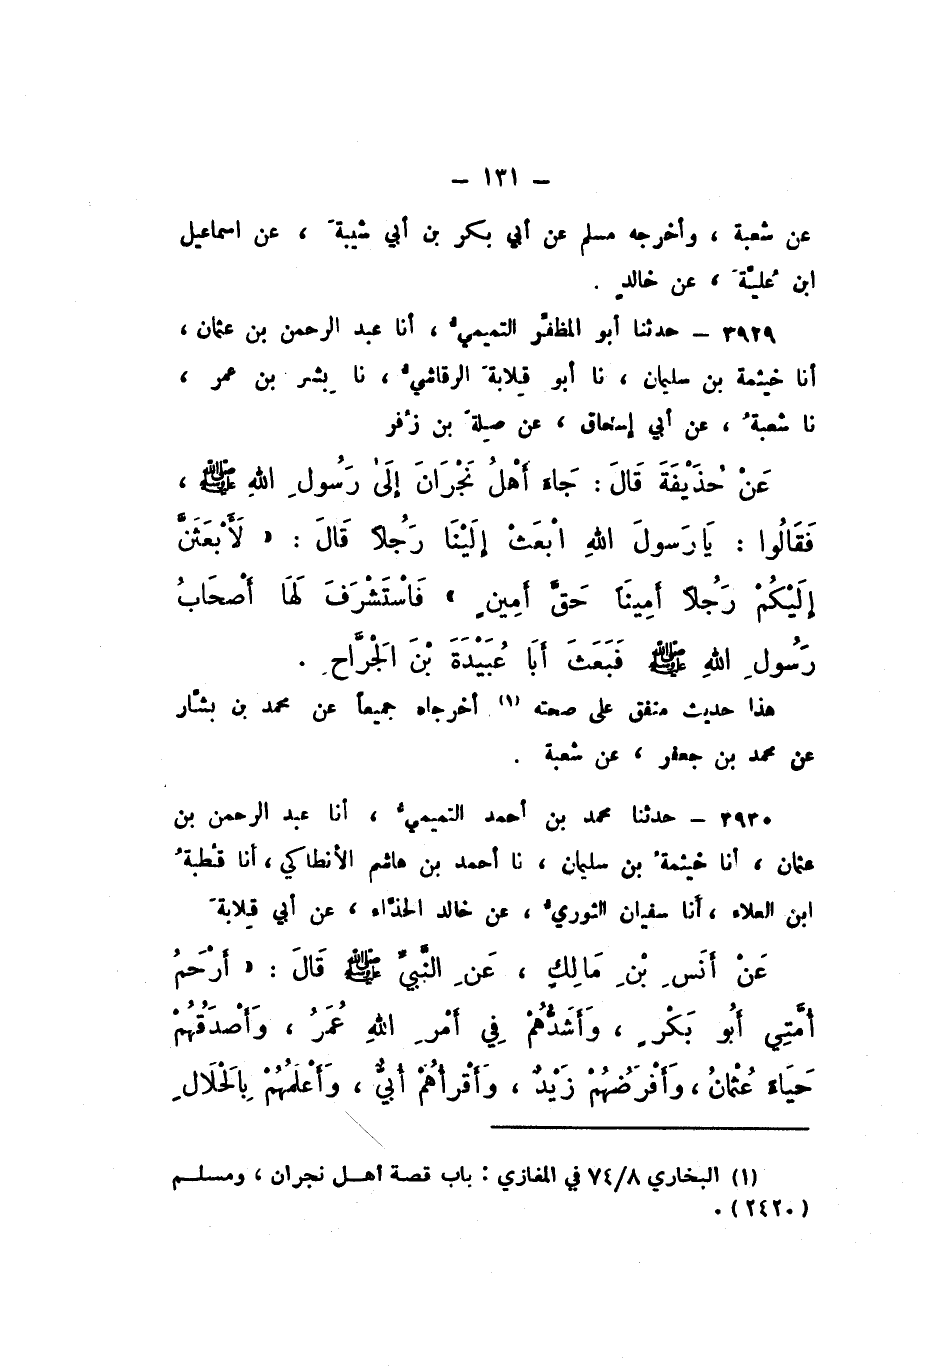 — ١٣١ —
عن شعبة ، وأخرجه مسلم عن أبي بكر بن أبي شيبةَ ، عن اسماعيل
ابن عُليَّةَ ، عن خالدٍ .
٣٩٢٩ – حدثنا أبو المظفَّر التميميُّ ، أنا عبد الرحمن بن عثمان ،
أنا خيثمة بن سليمان ، نا أبو قِلابةَ الرقاشيُّ ، نا بِشر بن عمر ،
نا شعبةُ ، عن أبي إسحاق ، عن صِلةَ بن زُفر
عَنْ حُذَيْفَةَ قَالَ : جَاءَ أَهْلُ نَجْرَانَ إِلَىٰ رَسُولِ اللهِ ﷺ ،
فَقَالُوا : يَا رَسولَ اللهِ ابْعَثْ إِلَيْنَا رَجُلاً قَالَ : « لَأَبْعَثَنَّ
إِلَيْكُمْ رَجُلاً أَمِينَاً حَقَّ أَمِينٍ » فَاسْتَشْرَفَ لَهَا أَصْحَابُ
رَسُولِ اللهِ ﷺ فَبَعَثَ أَبَا عُبَيْدَةَ بْنَ الْجَرَّاحِ .
هذا حديث متفق على صحته (١) أخرجاه جميعاً عن محمد بن بشَّار
عن محمد بن جعفر ، عن شعبة .
٣٩٣٠ – حدثنا محمد بن أحمد التميميُّ ، أنا عبد الرحمن بن
عثمان ، أنا خيثمةُ بن سليمان ، نا أحمد بن هاشم الأنطاكي ، أنا قُطبةُ
ابن العلاء ، أنا سفيان الثوريُّ ، عن خالد الحذَّاء ، عن أبي قِلابةَ
عَنْ أَنَسِ بْنِ مَالِكٍ ، عَنِ النَّبِيِّ ﷺ قَالَ : « أَرْحَمُ
أُمَّتِي أَبُو بَكْرٍ ، وَأَشَدُّهُمْ فِي أَمْرِ اللهِ عُمَرُ ، وَأَصْدَقُهُمْ
حَيَاءً عُثْمَانُ ، وَأَفْرَضُهُمْ زَيْدٌ ، وَأَقْرَأُهُمْ أُبَيٌّ ، وَأَعْلَمُهُمْ بِالْحَلَالِ
(١) البخاري ٧٤/٨ في المغازي : باب قصة أهل نجران ، ومسلم
(٢٤٢٠) .